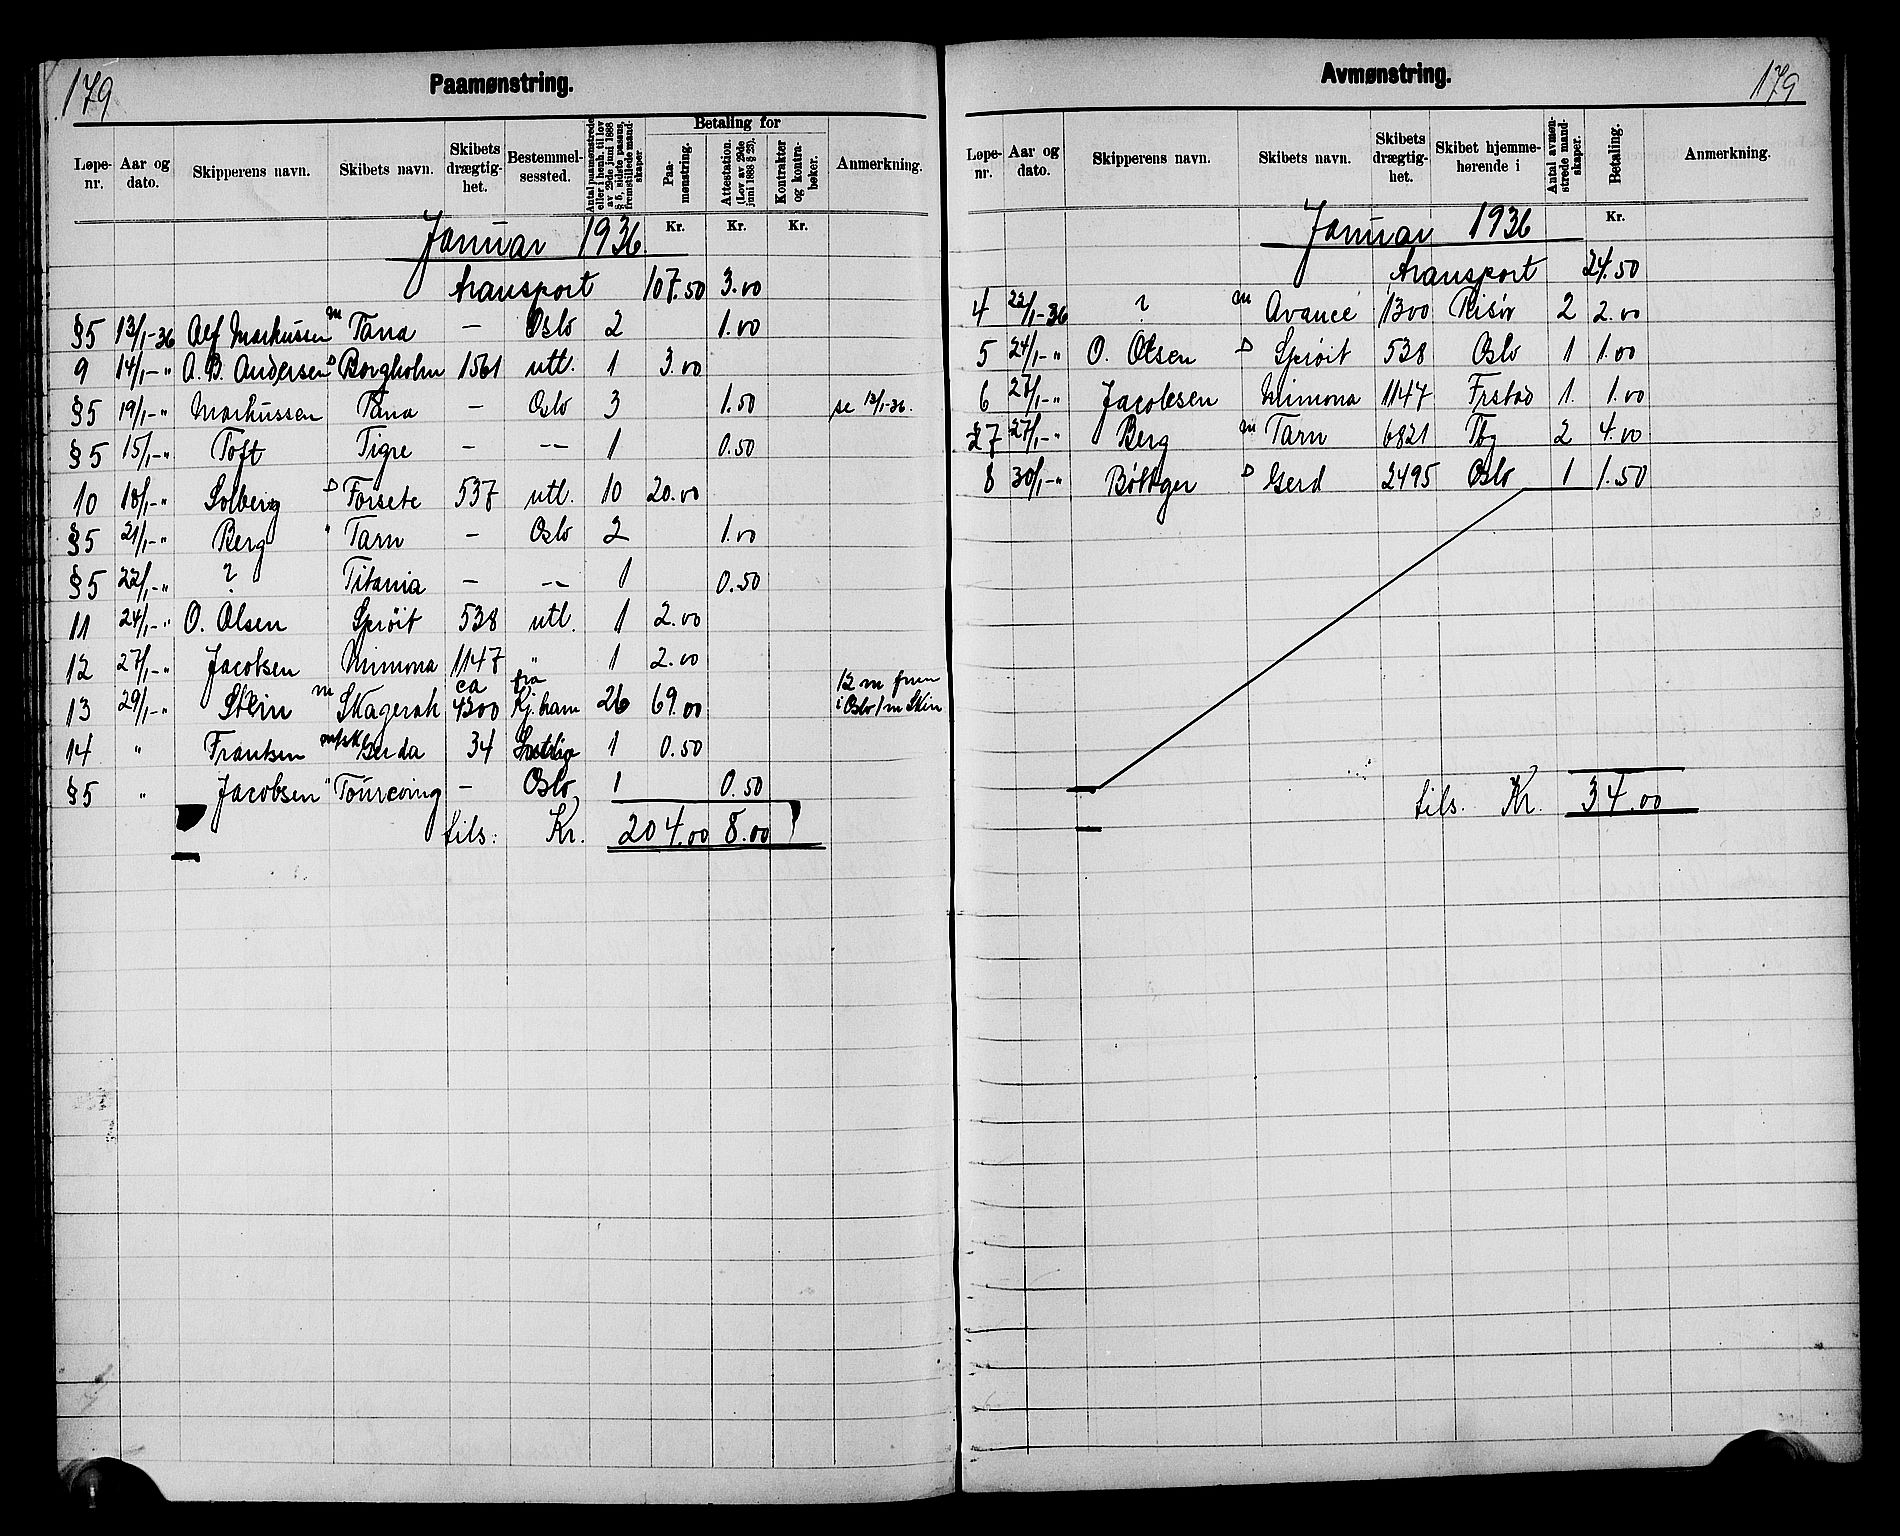 179
Paamønstring.
Løpe-nr. | Aar og dato. | Skipperens navn. | Skibets navn. | Skibets drægtig-het. | Bestemmel-sessted. | Antal paamønstrede eller i henh. til lov av 29de juni 1888 § 5, sidste passus, fremstillede mand-skaper | Betaling for | Paa-mønstring. | Attestation. (Lov av 29de juni 1888 § 25). | Kontrakter og kontra-bøker. | Anmerkning.
Kr. | Kr. | Kr.
Januar 1936.
transport 107.50 3.00
§5 13/1-36 Alf Markussen m Tana — Oslo 2 1.00
9 14/1-" A.B. Andersen D Borgholm 1561 utl. 1 3.00
§5 19/1-" Markussen Tana — Oslo 3 1.50 se 13/1-36.
§5 15/1-" Toft Tigre — -- 1 0.50
10 18/1-" Solberg D Forsete 537 utl. 10 20.00
§5 21/1-" Berg " Tarn — Oslo 2 1.00
§5 22/1-" ? Titania — -- 1 0.50
11 24/1-" O. Olsen Sprøit 538 utl. 1 2.00
12 27/1-" Jacobsen Mimona 1147 " 1 2.00
13 29/1-" Stein m Skagerak ca 4300 fra Kj.havn 26 69.00 12 m frem i Oslo
14 " Frantsen m/sk Gerda 34 1 0.50
§5 " Jacobsen " Tourcoing — Oslo 1 0.50
tils: Kr. 204.00 8.00
179
Avmønstring.
Løpe-nr. | Aar og dato. | Skipperens navn. | Skibets navn. | Skibets drægtig-het. | Skibet hjemme-hørende i | Antal avmøn-strede mand-skaper. | Betaling. | Anmerkning.
Kr.
Januar 1936
transport 24.50
4 22/1-36 ? m Avance 1300 Risør 2 2.00
5 24/1-" O. Olsen D Sprøit 538 Oslo 1 1.00
6 27/1-" Jacobsen Mimona 1147 Frstad 1. 1.00
§ 7 27/1-" Berg m Tarn 6821 Tbg 2 4.00
8 30/1-" Bøttger D Gerd 2495 Oslo 1 1.50
tils. Kr. 34.00